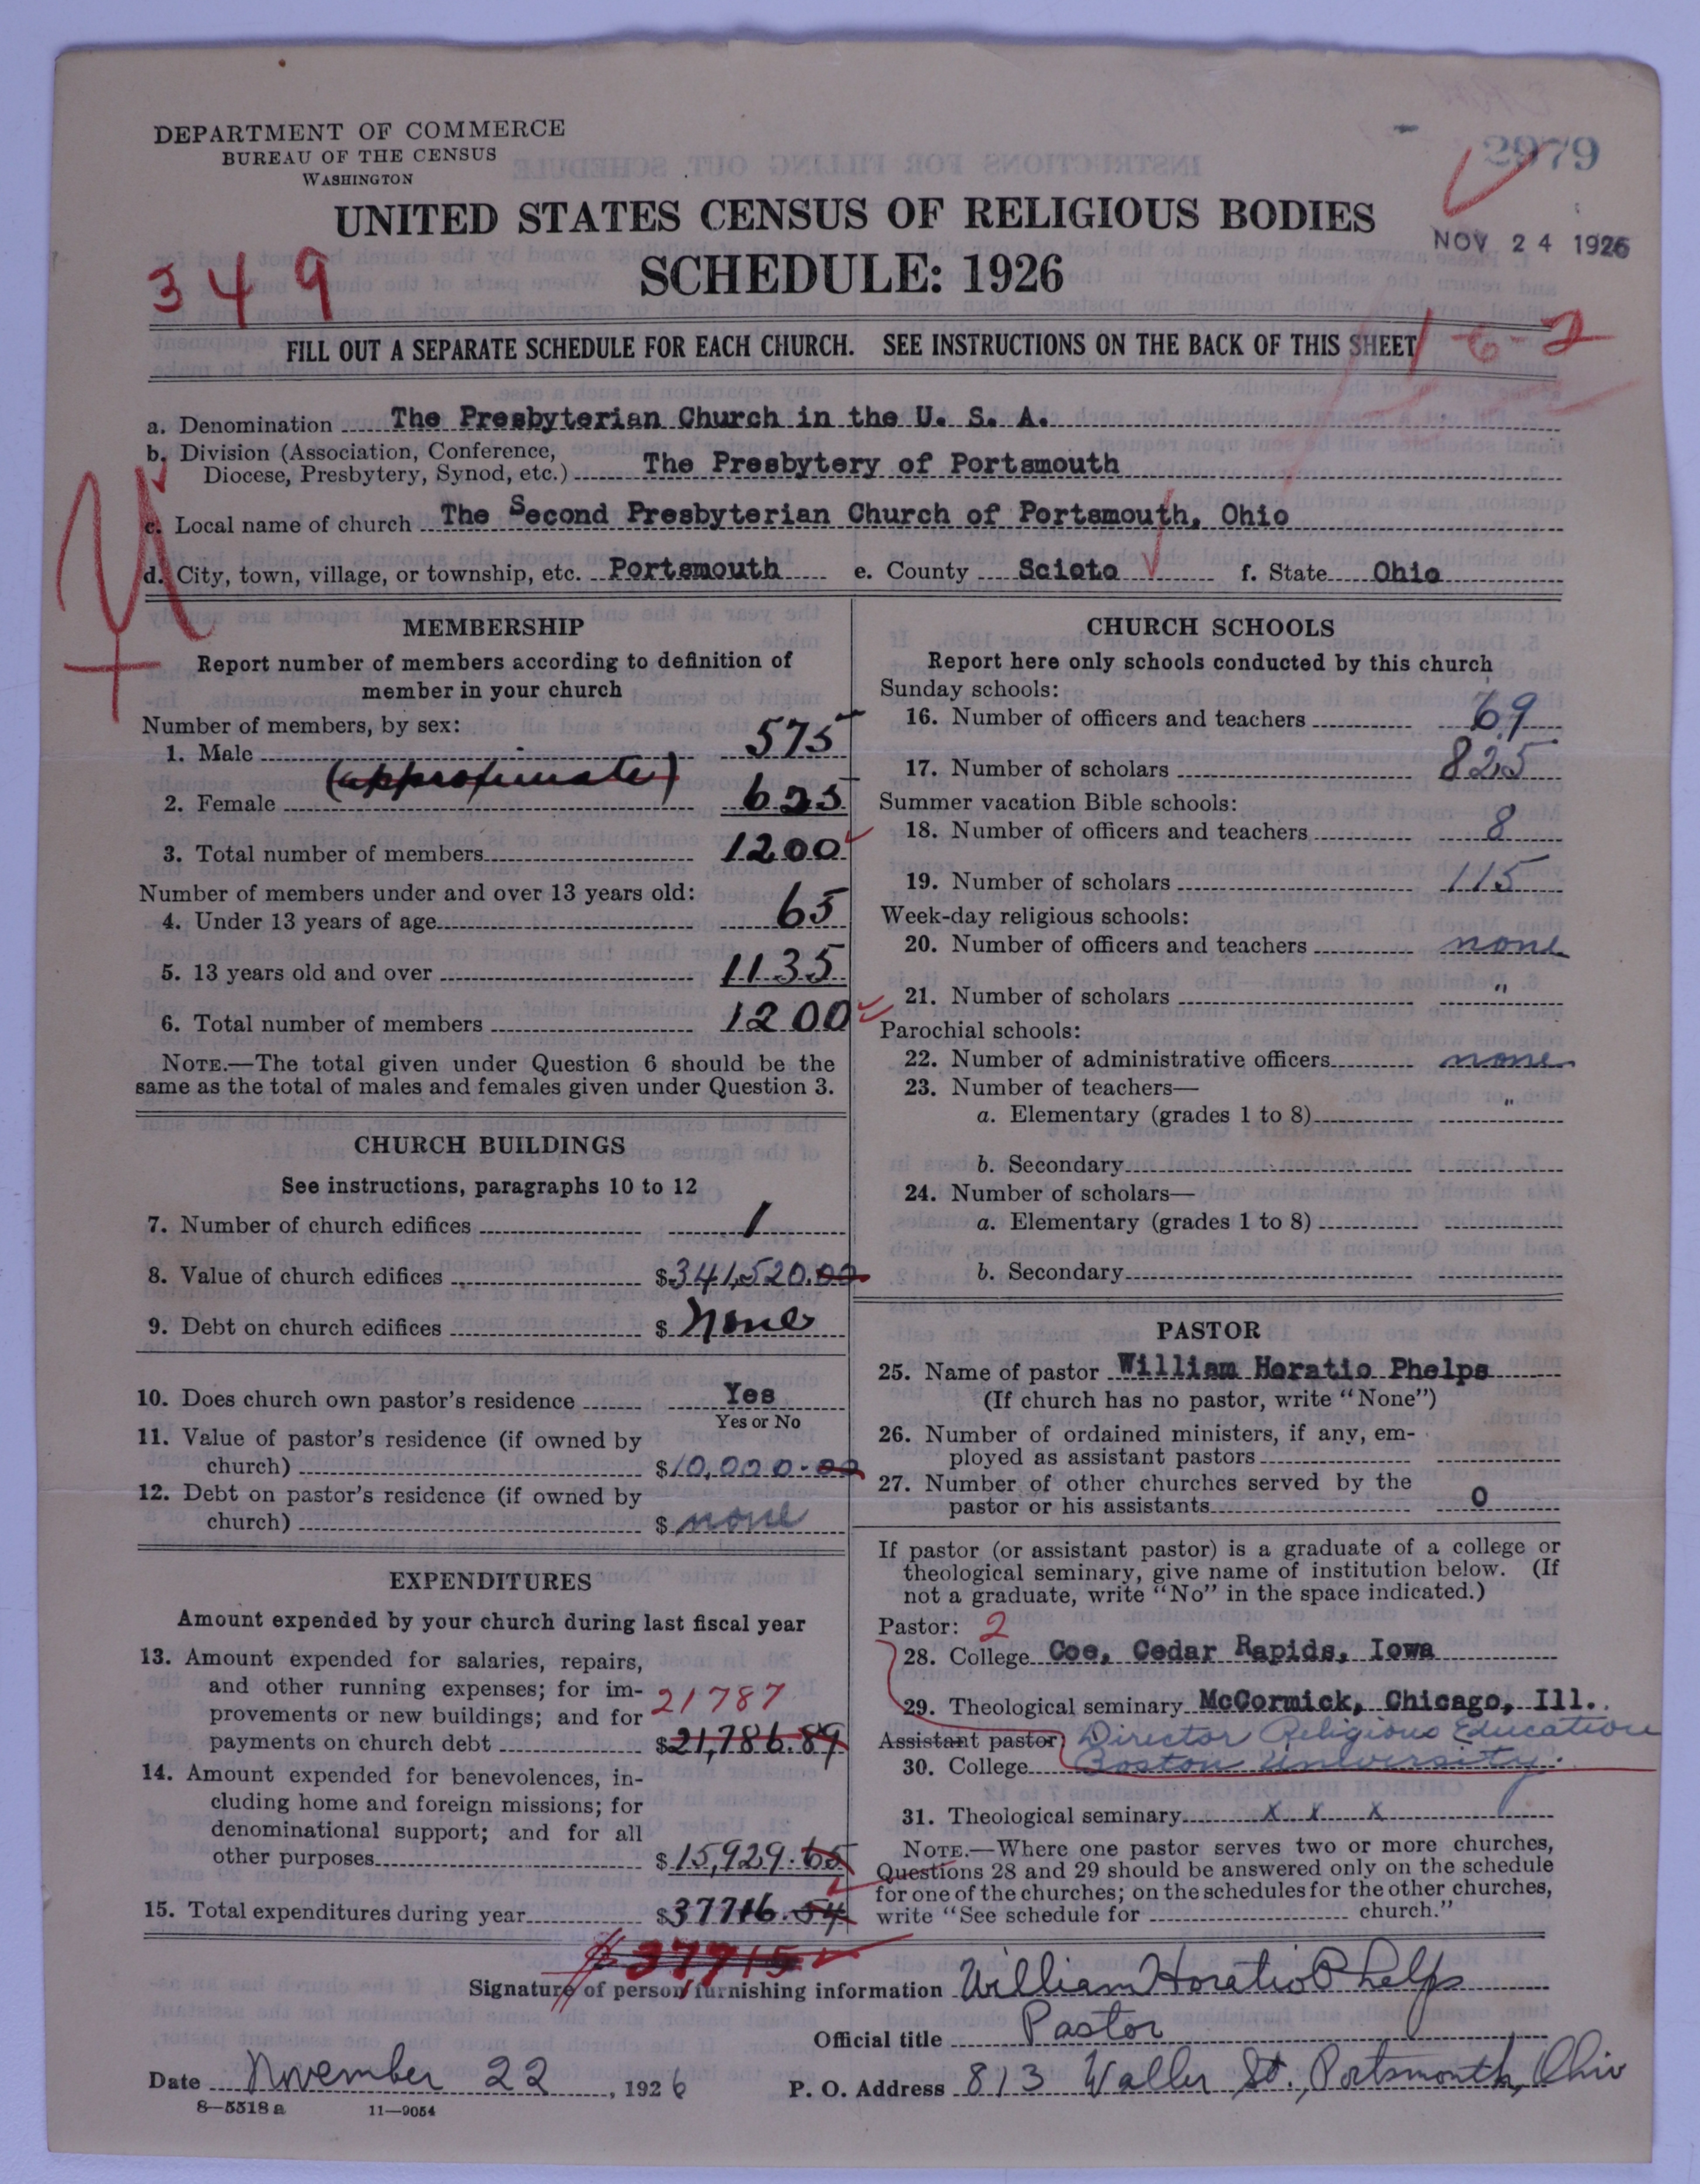 DEPARTMENT OF COMMERCE
BUREAU OF THE CENSUS
WASHINGTON
2979
UNITED STATES CENSUS OF RELIGIOUS BODIES
NOV 24 1926
SCHEDULE: 1926
349
FILL OUT A SEPARATE SCHEDULE FOR EACH CHURCH. SEE INSTRUCTIONS ON THE BACK OF THIS SHEET
1-6-2
a. Denomination The Presbyterian Church in the U. S. A.
b. Division (Association, Conference,
Diocese, Presbytery, Synod, etc.) The Presbytery of Portsmouth
c. Local name of church The Second Presbyterian Church of Portsmouth, Ohio
d. City, town, village, or township, etc. Portsmouth e. County Scioto f. State Ohio
MEMBERSHIP
Report number of members according to definition of
member in your church
Number of members, by sex:
1. Male 575
(approximate)
2. Female 625
3. Total number of members 1200
Number of members under and over 13 years old:
4. Under 13 years of age 65
5. 13 years old and over 1135
6. Total number of members 1200
NOTE.—The total given under Question 6 should be the
same as the total of males and females given under Question 3.
CHURCH BUILDINGS
See instructions, paragraphs 10 to 12
7. Number of church edifices 1
8. Value of church edifices $341,520.00
9. Debt on church edifices $ None
10. Does church own pastor's residence Yes
Yes or No
11. Value of pastor's residence (if owned by
church) $10,000.00
12. Debt on pastor's residence (if owned by
church) $ none
EXPENDITURES
Amount expended by your church during last fiscal year
13. Amount expended for salaries, repairs,
and other running expenses; for im-
provements or new buildings; and for 21787
payments on church debt $21,786.89
14. Amount expended for benevolences, in-
cluding home and foreign missions; for
denominational support; and for all
other purposes $15,929.65
15. Total expenditures during year $37716.54
$37715
CHURCH SCHOOLS
Report here only schools conducted by this church
Sunday schools:
16. Number of officers and teachers 69
17. Number of scholars 825
Summer vacation Bible schools:
18. Number of officers and teachers 8
19. Number of scholars 115
Week-day religious schools:
20. Number of officers and teachers none
21. Number of scholars "
Parochial schools:
22. Number of administrative officers none
23. Number of teachers—
a. Elementary (grades 1 to 8) "
b. Secondary
24. Number of scholars—
a. Elementary (grades 1 to 8)
b. Secondary
PASTOR
25. Name of pastor William Horatio Phelps
(If church has no pastor, write "None")
26. Number of ordained ministers, if any, em-
ployed as assistant pastors
27. Number of other churches served by the
pastor or his assistants 0
If pastor (or assistant pastor) is a graduate of a college or
theological seminary, give name of institution below. (If
not a graduate, write "No" in the space indicated.)
Pastor: 2
28. College Coe, Cedar Rapids, Iowa
29. Theological seminary McCormick, Chicago, Ill.
Assistant pastor: Director Religious Education
30. College Boston University.
31. Theological seminary x x x
NOTE.—Where one pastor serves two or more churches,
Questions 28 and 29 should be answered only on the schedule
for one of the churches; on the schedules for the other churches,
write "See schedule for church."
Signature of person furnishing information William Horatio Phelps
Official title Pastor
Date November 22, 1926 P. O. Address 813 Waller St., Portsmouth, Ohio
8—5518 a 11—9054